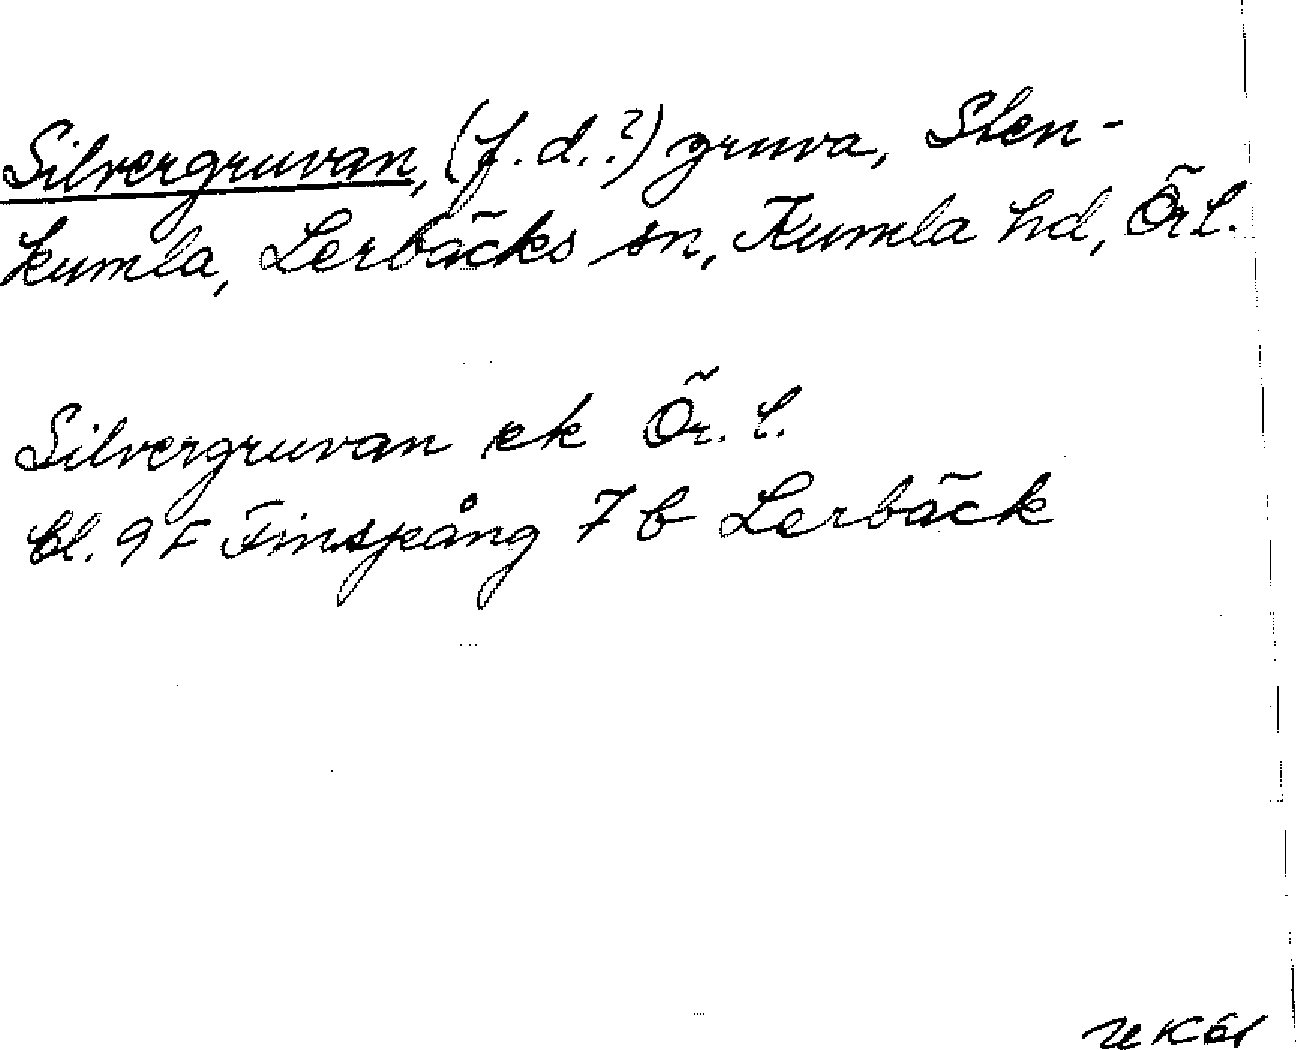 Silvergruvan, (f.d.?) gruva, Sten-
kumla, Lerbäcks sn, Kumla hd, Ör l.
Silvergruvan ek Ör. l.
bl. 9 F Finspång 7 b Lerbäck